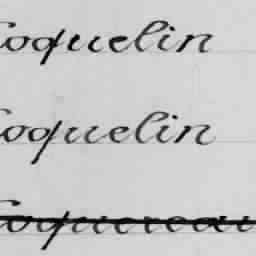 Coquelin
Coquelin
Coquereau